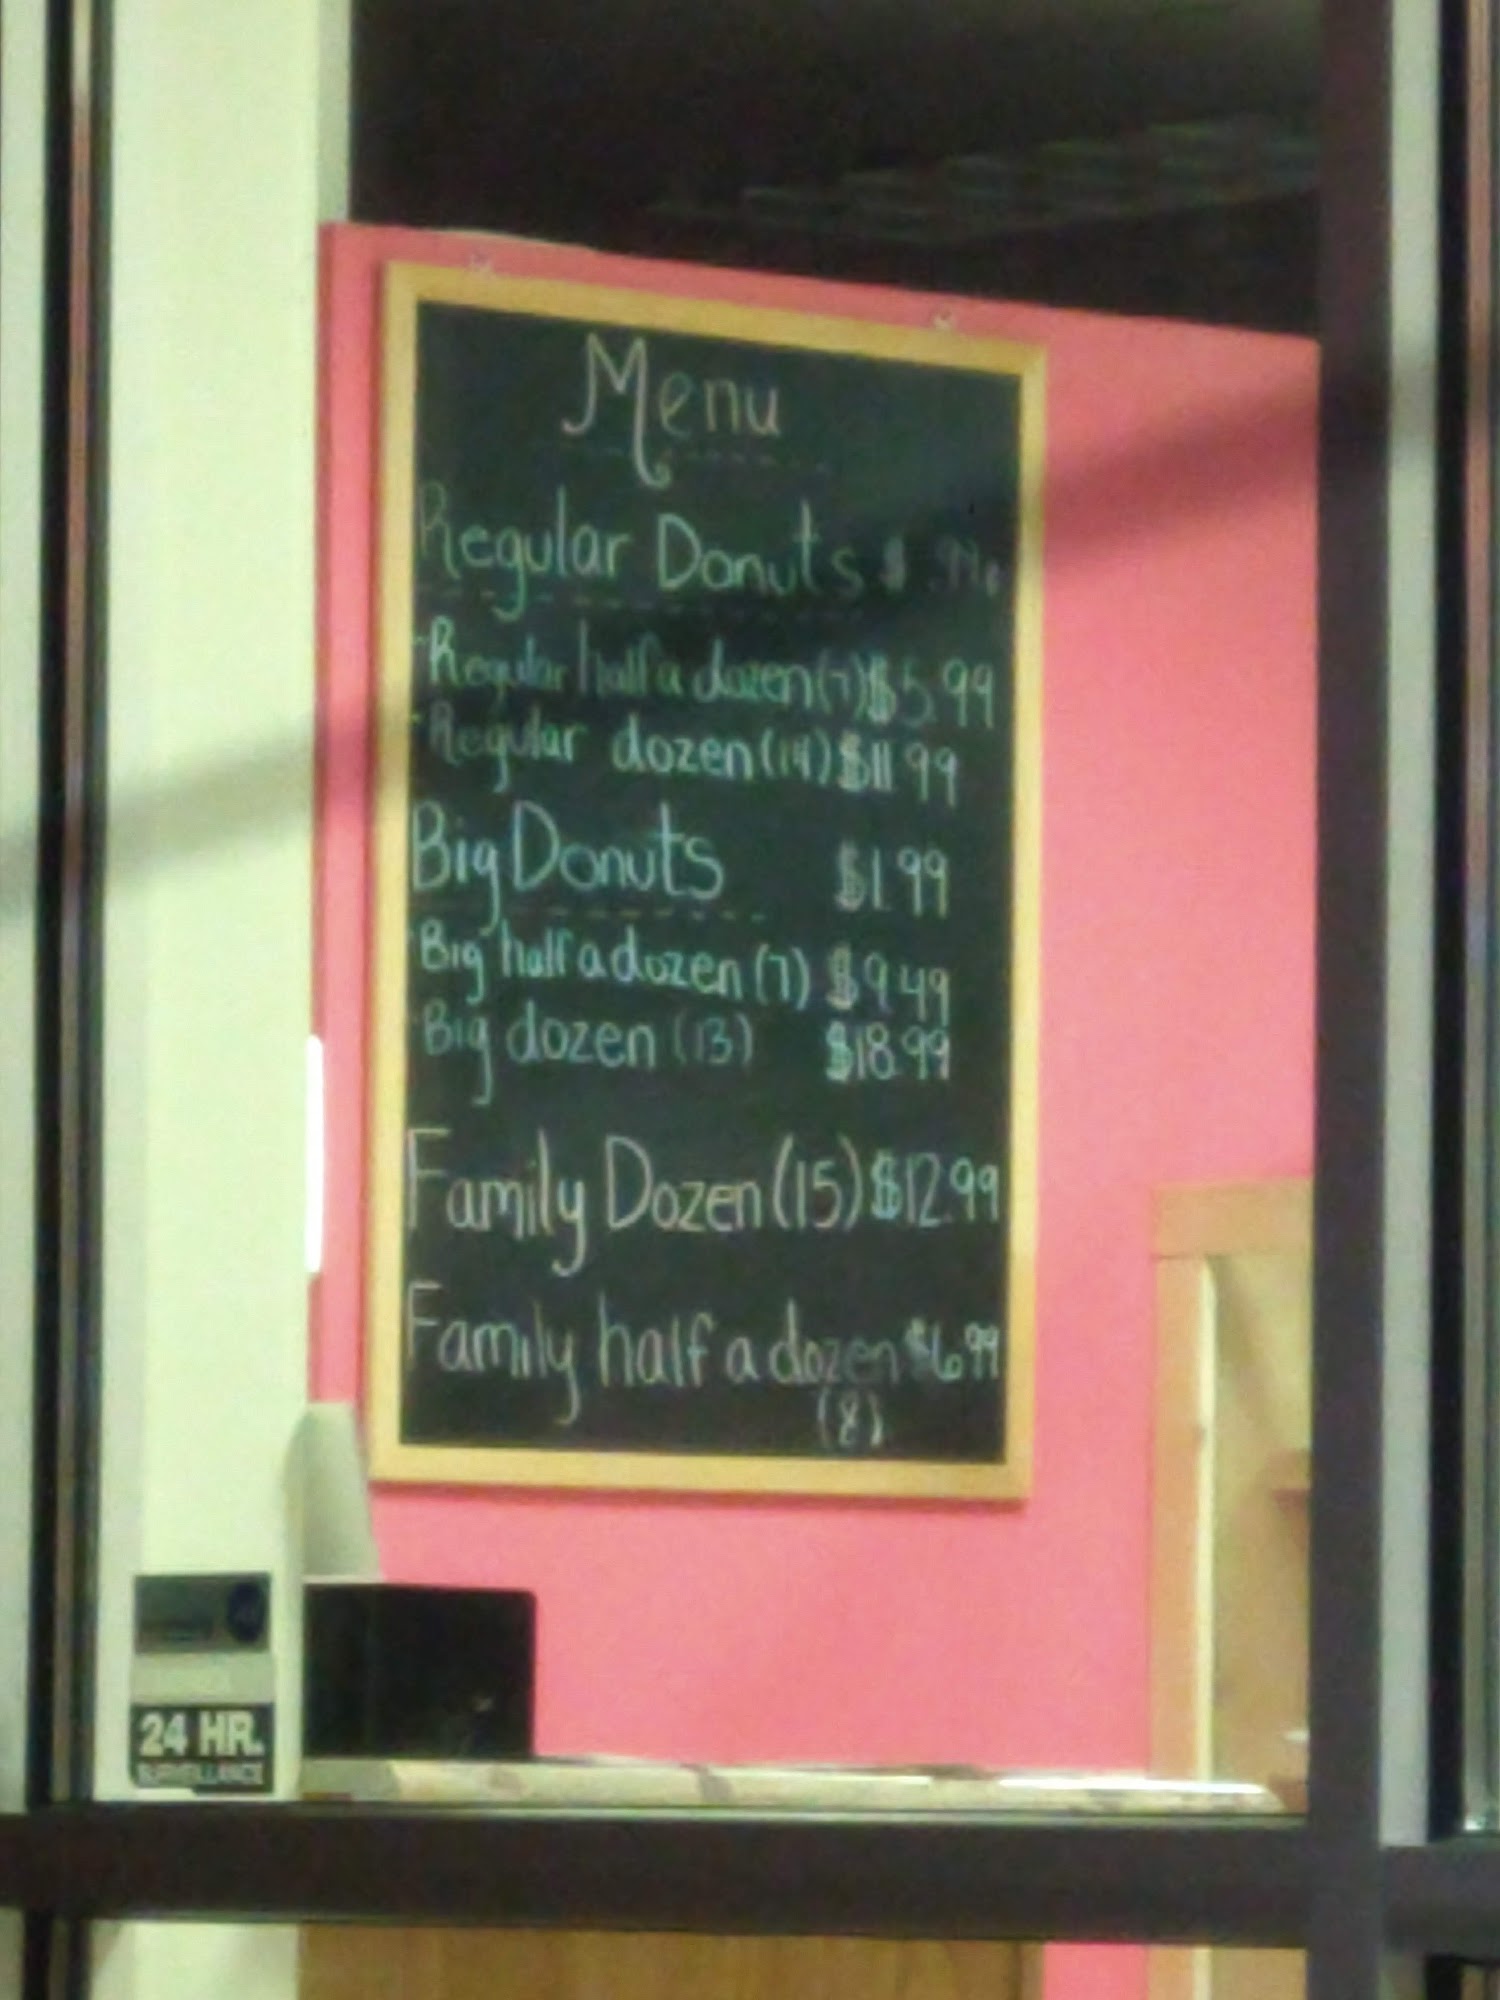 Menu
Regular Donuts $
Regular half a dozen (7) $5.99
Regular dozen (14) $11.99
Big Donuts $1.99
Big half a dozen (7) $9.49
Big dozen (13) $18.99
Family Dozen (15) $12.99
Family half a dozen $6.99
(8)
24 HR.
SURVEILLANCE